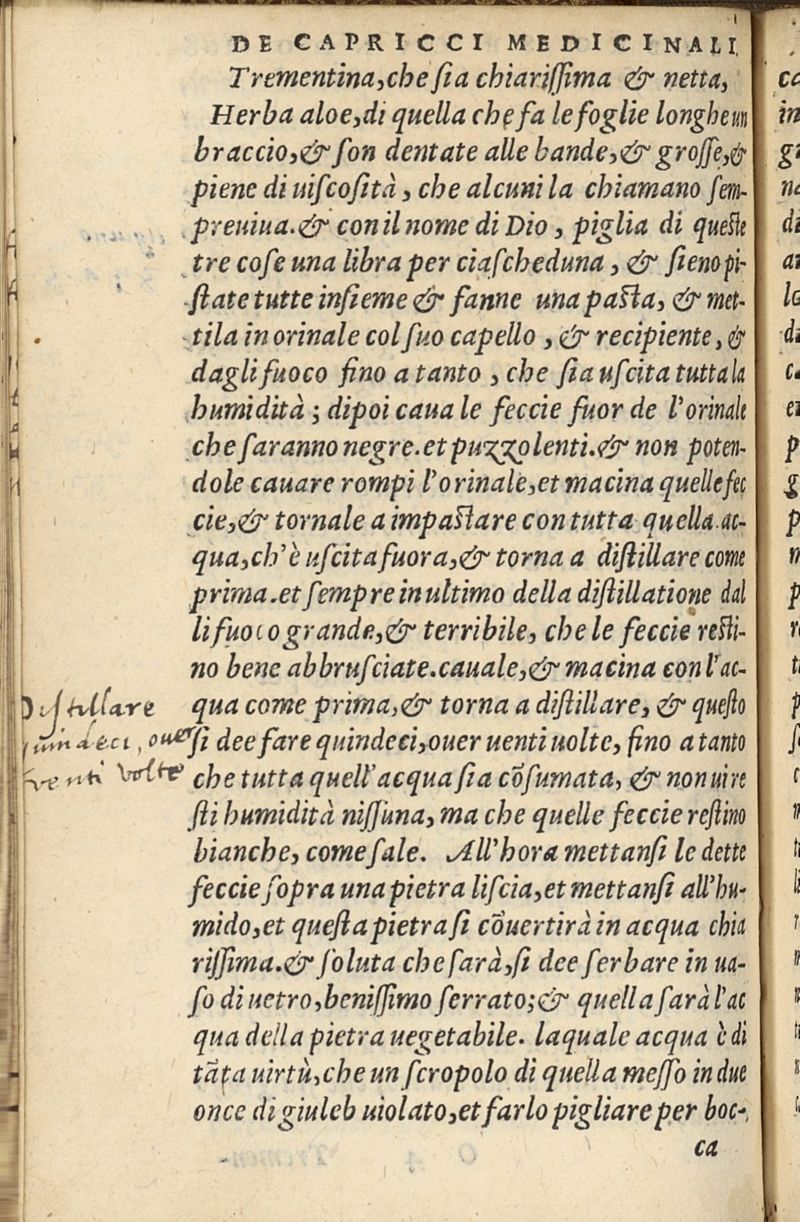 DE CAPRICCI MEDICINALI
Trementina, che ſia chiariſſima & netta,
Herba aloe, di quella che fa le foglie longhe un
braccio, & ſon dentate alle bande, & groſſe, &
piene di uiſcoſità, che alcuni la chiamano ſem-
preuiua. & con il nome di Dio, piglia di queſte
tre coſe una libra per ciaſcheduna, & ſieno pi-
ſtate tutte inſieme & fanne una paſta, & met-
tila in orinale col ſuo capello, & recipiente, &
dagli fuoco fino a tanto, che ſia uſcita tutta la
humidità; dipoi caua le feccie fuor de l'orinale
che ſaranno negre. et puzzolenti. & non poten-
dole cauare rompi l'orinale, et macina quelle fec
cie, & tornale a impaſtare con tutta quella ac-
qua, ch'è uſcita fuora, & torna a diſtillare come
prima. et ſempre in ultimo della diſtillatione dal
li fuoco grande, & terribile, che le feccie reſti-
no bene abbruſciate. cauale, & macina con l'ac-
qua come prima, & torna a diſtillare, & queſto
ſi dee fare quindeci, ouer uenti uolte, fino a tanto
che tutta quell'acqua ſia cõſumata, & non ui re
ſti humidità niſſuna, ma che quelle feccie reſtino
bianche, come ſale. All'hora mettanſi le dette
feccie ſopra una pietra liſcia, et mettanſi all'hu-
mido, et queſta pietra ſi cõuertirà in acqua chia
riſſima. & ſoluta che ſarà, ſi dee ſerbare in ua-
ſo di uetro, beniſſimo ſerrato; & quella ſarà l'ac
qua della pietra uegetabile. laquale acqua è di
tãta uirtù, che un ſcropolo di quella meſſo in due
once di giuleb uiolato, et farlo pigliare per boc-
ca
Diſtillare
quindeci, ouer
venti volte